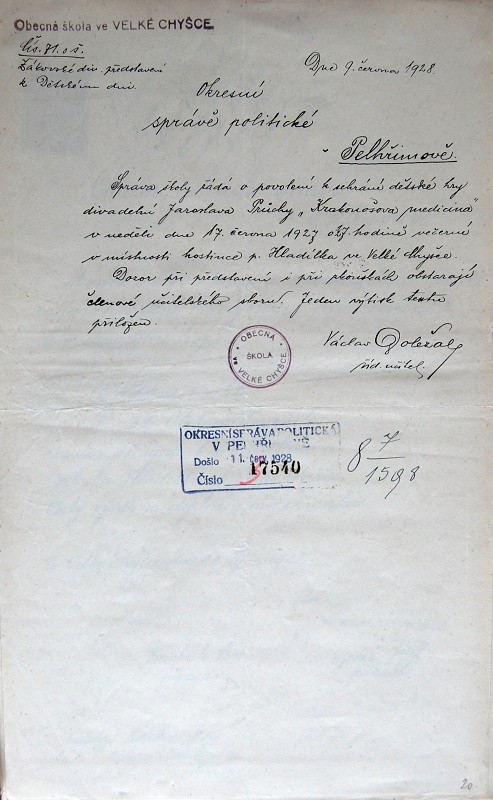 Obecná škola ve VELKÉ CHYŠCE.
Čís. 71. o š.
Žákovské div. představení
k Dětském dni.
Dne 9. června 1928.
Okresní
správě politické
v Pelhřimově.
Správa školy žádá o povolení k sehrání dětské hry
divadelní Jaroslava Průchy „Krakonošova medicina"
v neděli dne 17. června 1927 o 7. hodině večerní
v místnosti hostince p. Hladílka ve Velké Chyšce.
Dozor při představení i při zkouškách obstarají
členové učitelského sboru. Jeden výtisk textu
přiložen.
OBECNÁ ŠKOLA VE VELKÉ CHYŠCE
Václav Doležal
říd. učitel.
OKRESNÍ SPRÁVA POLITICKÁ
V PELHŘIMOVĚ
Došlo 11. červ. 1928
17540
Číslo
8 7/1598
20